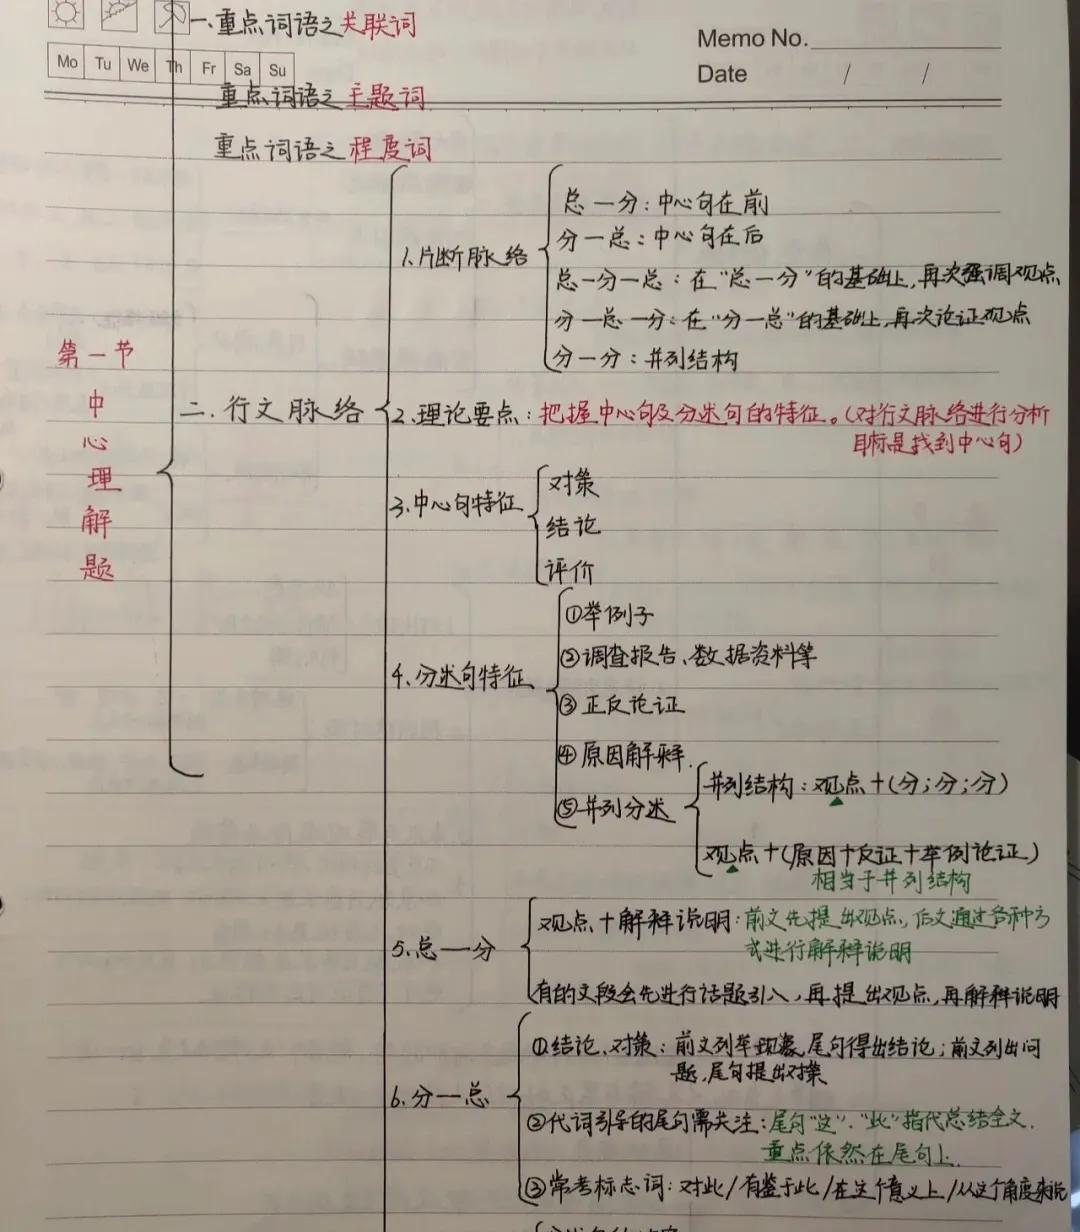 一、重点词语之关联词
Memo No.
Mo Tu We Th Fr Sa Su
Date / /
重点词语之主题词
重点词语之程度词
第一节
中心理解题
二.行文脉络
1.片断脉络
总一分：中心句在前
分一总：中心句在后
总一分一总：在“总一分”的基础上,再次强调观点
分一总一分：在“分一总”的基础上,再次论证观点
分一分：并列结构
2.理论要点：把握中心句及分述句的特征。(对行文脉络进行分析
目标是找到中心句)
3.中心句特征
对策
结论
评价
4.分述句特征
①举例子
②调查报告、数据资料等
③正反论证
④原因解释.
⑤并列分述
并列结构：观点+(分；分；分)
观点+(原因+反证+举例论证)
相当于并列结构
5.总一分
观点+解释说明：前文先提出观点,后文通过各种方
式进行解释说明
有的文段会先进行话题引入,再提出观点,再解释说明
6.分一总
①结论、对策：前文列举现象,尾句得出结论；前文列出问
题,尾句提出对策
②代词引导的尾句需关注：尾句“这”、“此”指代总结全文.
重点依然在尾句上.
③常考标志词：对此/有鉴于此/在这个意义上/从这个角度来说